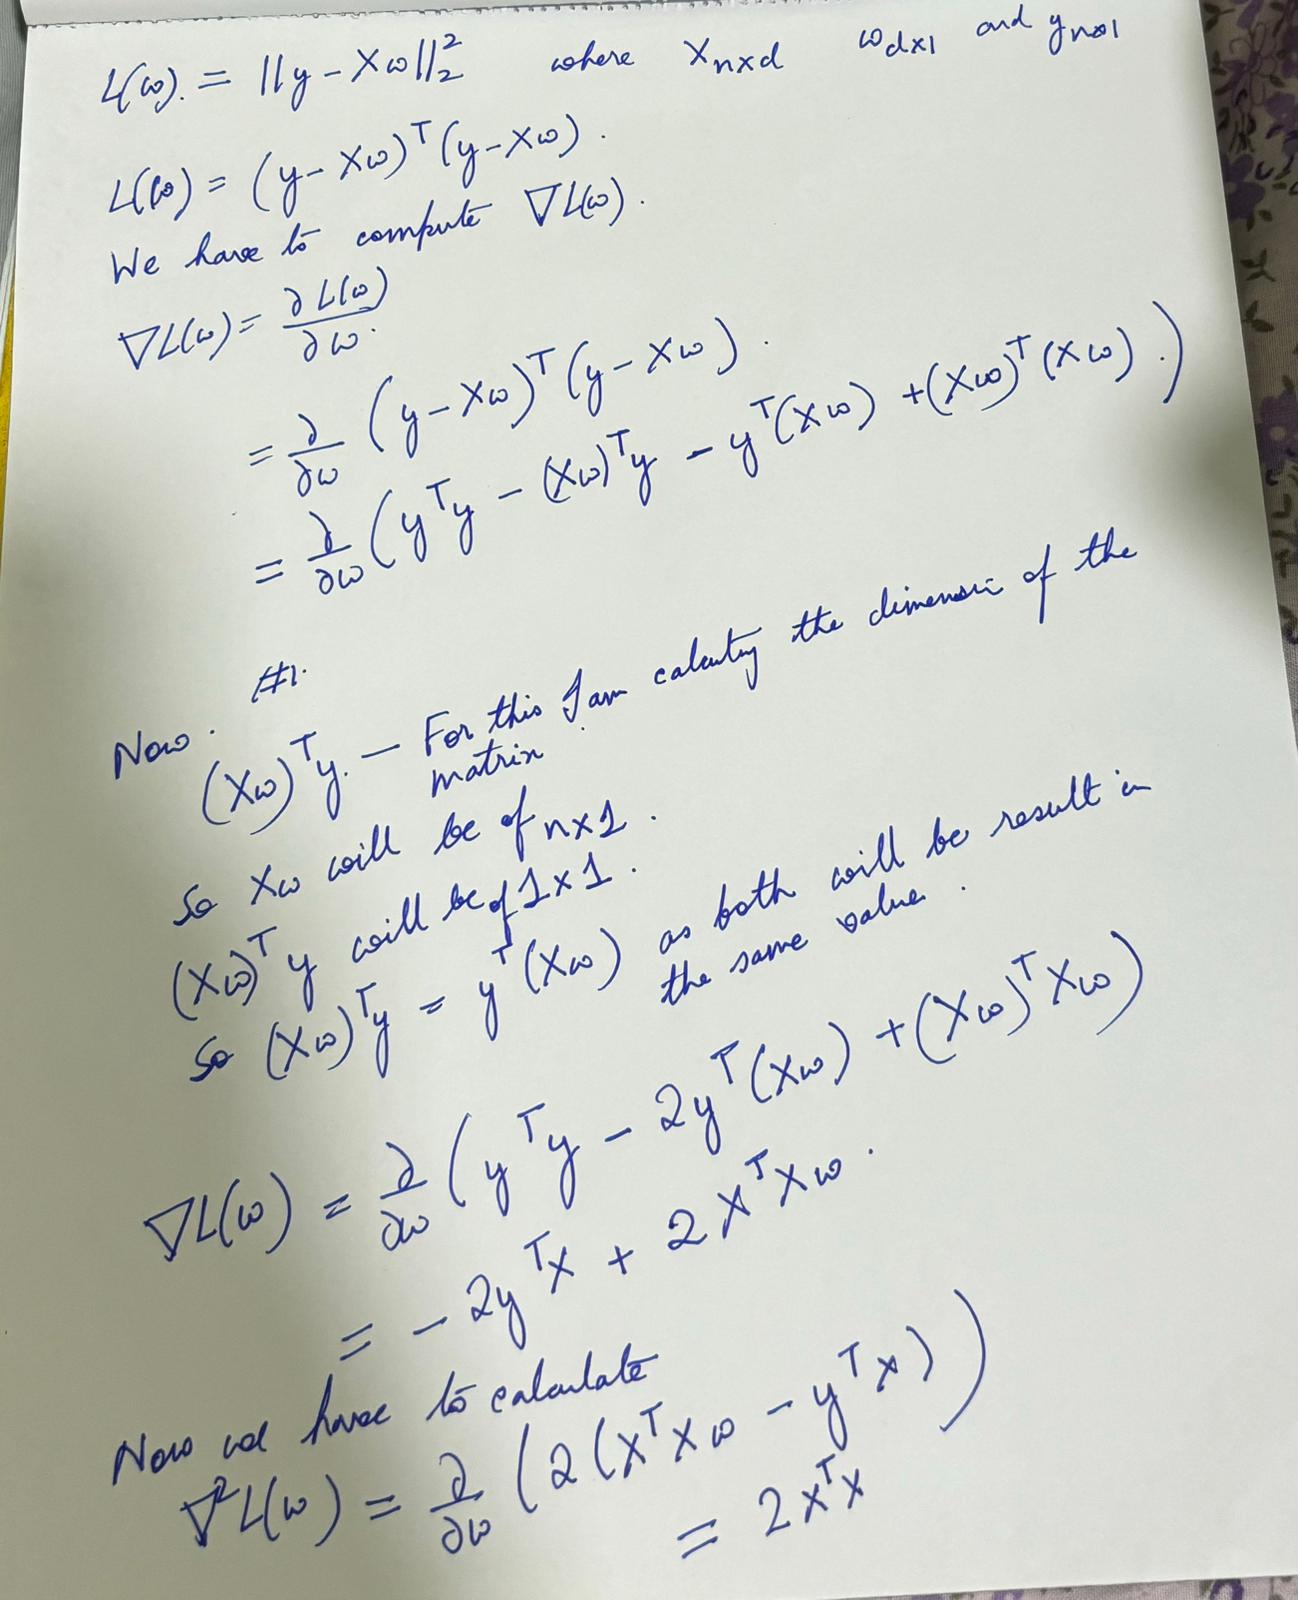 L(ω) = ||y - Xω||₂² where X_{n×d} ω_{d×1} and y_{n×1}
L(ω) = (y - Xω)ᵀ(y - Xω).
We have to compute ∇L(ω).
∇L(ω) = ∂L(ω)/∂ω.
= ∂/∂ω (y - Xω)ᵀ(y - Xω).
= ∂/∂ω (yᵀy - (Xω)ᵀy - yᵀ(Xω) + (Xω)ᵀ(Xω).)
#1.
Now.
(Xω)ᵀy. — For this I am calculating the dimension of the
matrix.
So Xω will be of n×1.
(Xω)ᵀy will be of 1×1.
So (Xω)ᵀy = yᵀ(Xω) as both will be result in
the same value.
∇L(ω) = ∂/∂ω (yᵀy - 2yᵀ(Xω) + (Xω)ᵀXω)
= -2yᵀX + 2XᵀXω.
Now we have to calculate
∇²L(ω) = ∂/∂ω (2(XᵀXω - yᵀX))
= 2XᵀX